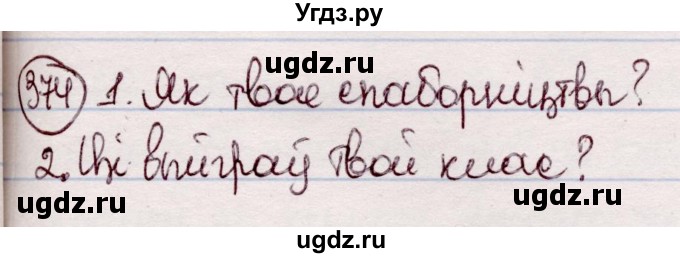 Угдз.ру
ugdz.ru
374 1. Як твае спаборніцтвы?
ugdz.ru
2. Ці выйграў твой клас?
ugdz.ru
ugdz.ru
ugdz.ru